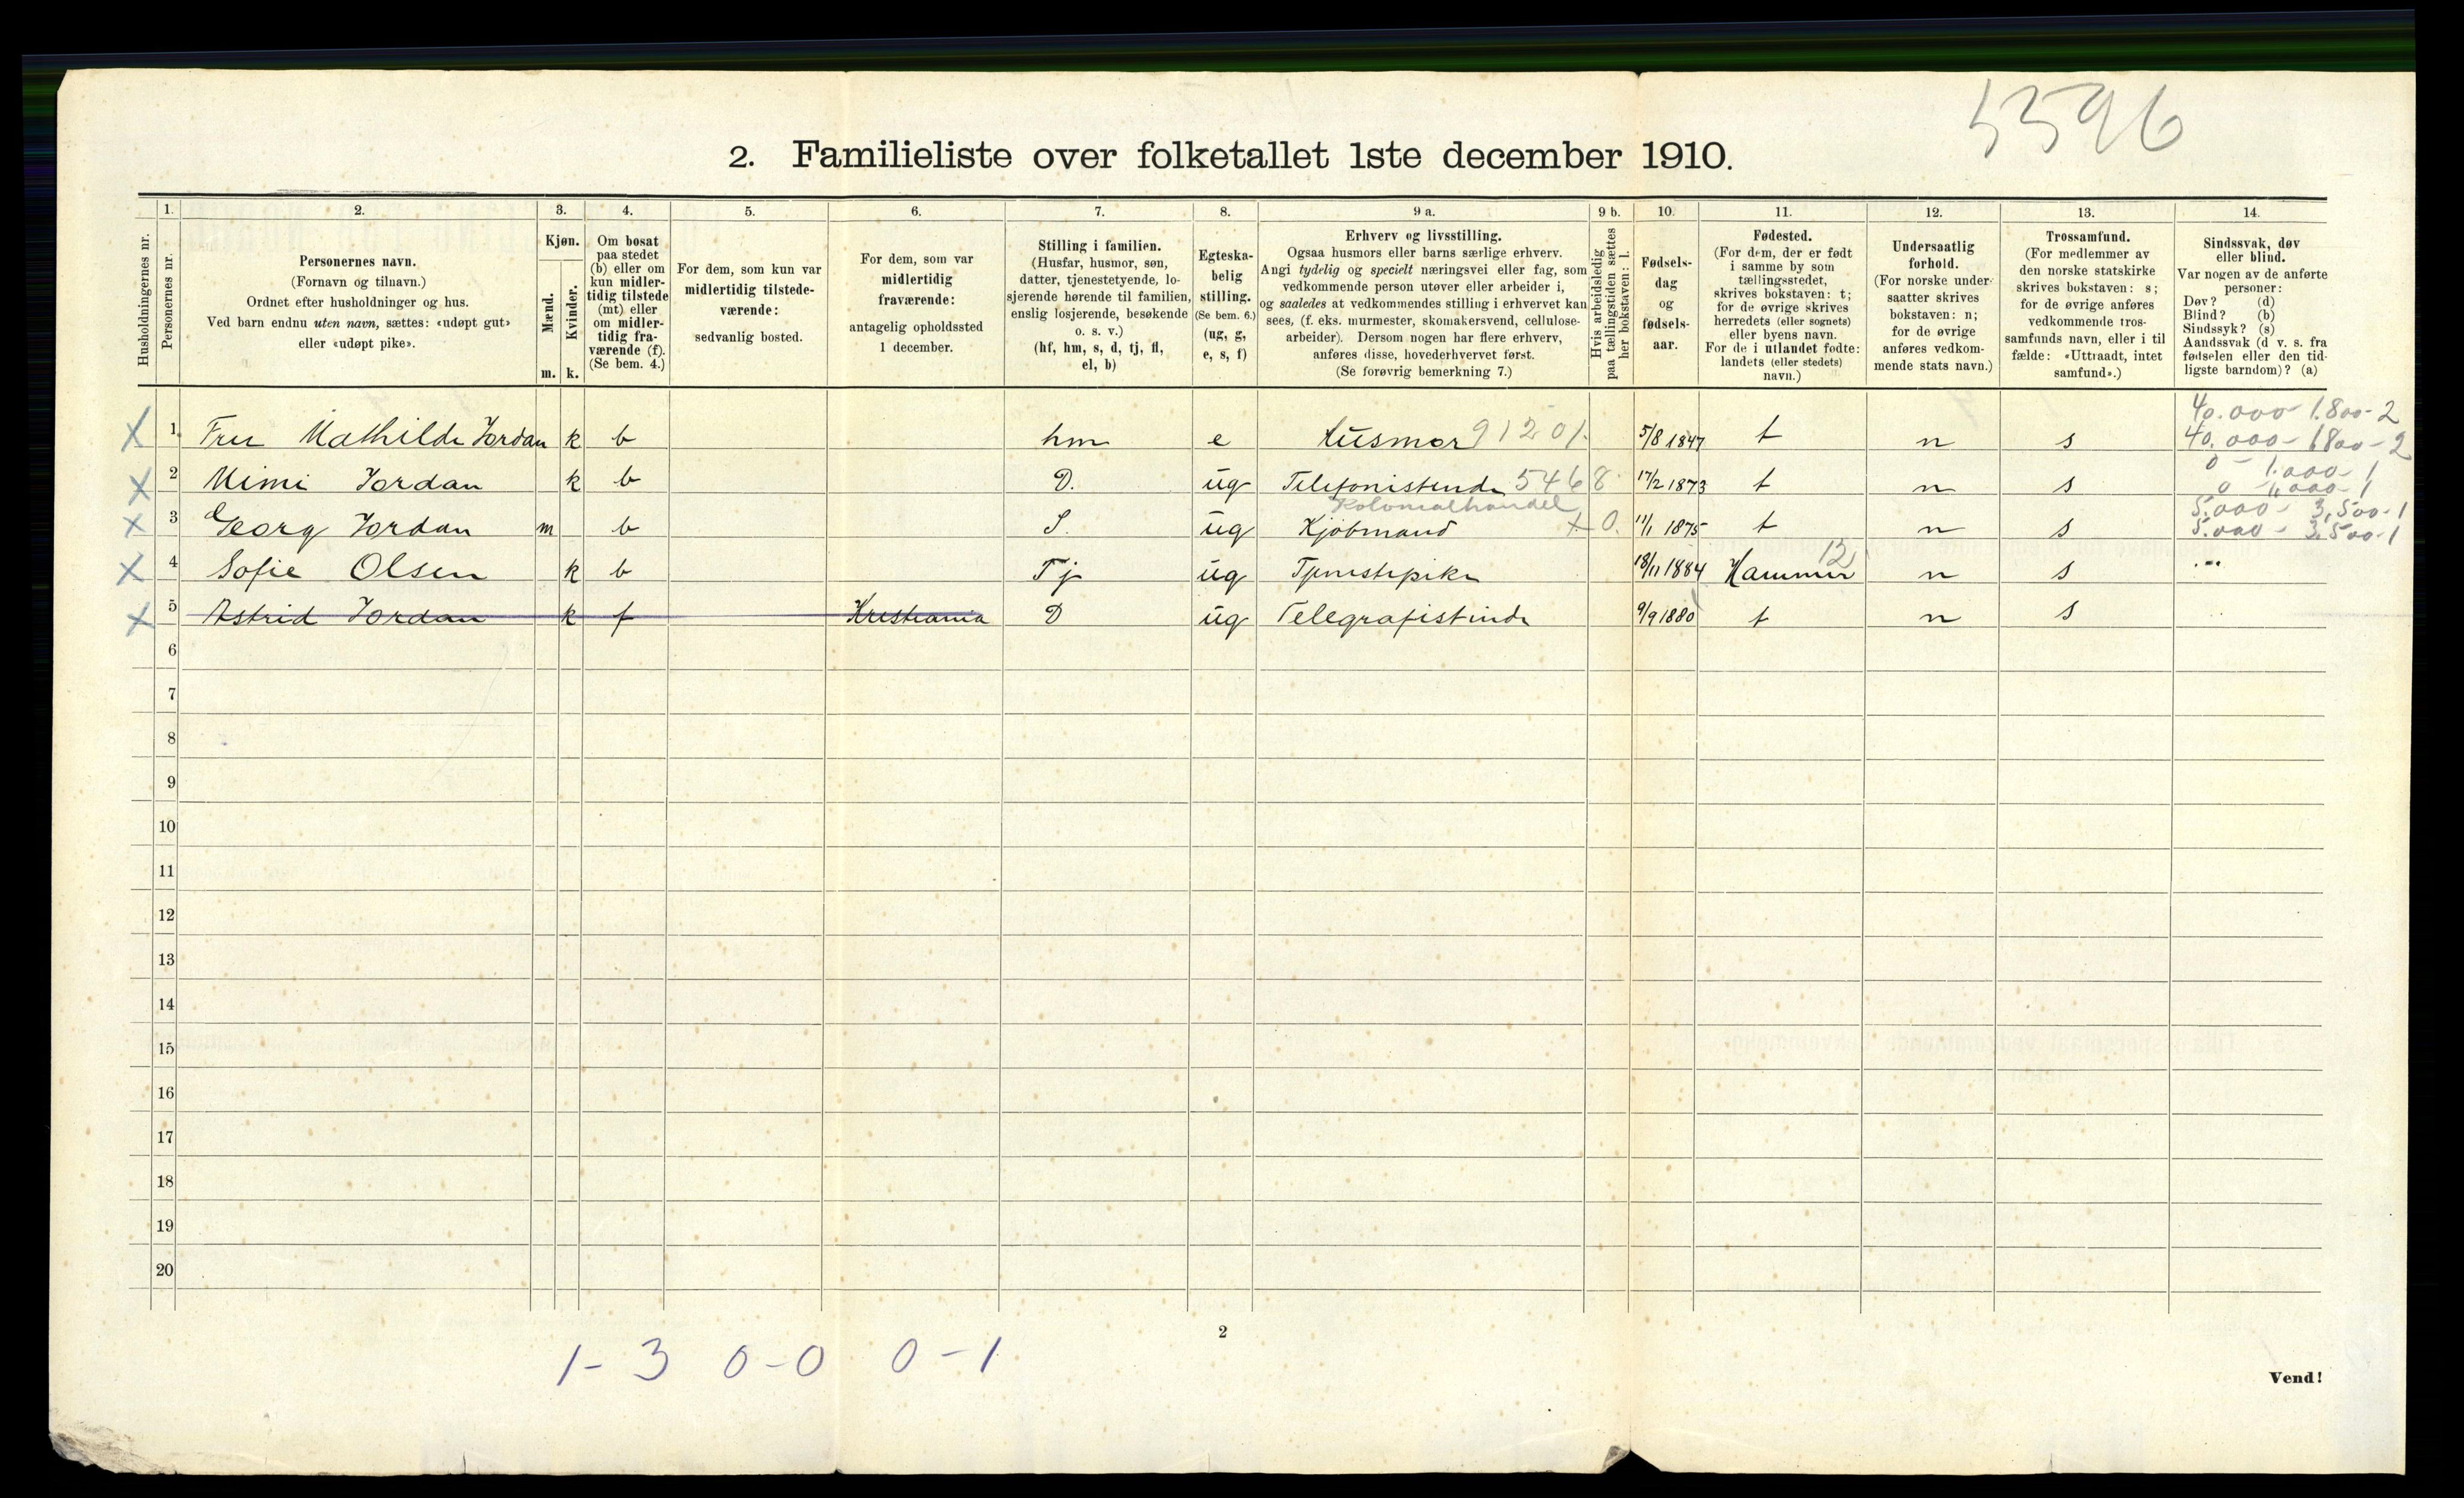 5596
2. Familieliste over folketallet 1ste december 1910.
Husholdningernes nr.
1. Personernes nr.
2. Personernes navn.
(Fornavn og tilnavn.)
Ordnet efter husholdninger og hus.
Ved barn endnu uten navn, sættes: «udøpt gut»
eller «udøpt pike».
3. Kjøn.
Mænd. m.
Kvinder. k.
4. Om bosat
paa stedet
(b) eller om
kun midler-
tidig tilstede
(mt) eller
om midler-
tidig fra-
værende (f).
(Se bem. 4.)
5. For dem, som kun var
midlertidig tilstede-
værende:
sedvanlig bosted.
6. For dem, som var
midlertidig
fraværende:
antagelig opholdssted
1 december.
7. Stilling i familien.
(Husfar, husmor, søn,
datter, tjenestetyende, lo-
sjerende hørende til familien,
enslig losjerende, besøkende
o. s. v.)
(hf, hm, s, d, tj, fl,
el, b)
8. Egteska-
belig
stilling.
(Se bem. 6.)
(ug, g,
e, s, f)
9 a. Erhverv og livsstilling.
Ogsaa husmors eller barns særlige erhverv.
Angi tydelig og specielt næringsvei eller fag, som
vedkommende person utøver eller arbeider i,
og saaledes at vedkommendes stilling i erhvervet kan
sees, (f. eks. murmester, skomakersvend, cellulose-
arbeider). Dersom nogen har flere erhverv,
anføres disse, hovederhvervet først.
(Se forøvrig bemerkning 7.)
9 b. Hvis arbeidsledig
paa tællingstiden sættes
her bokstaven: l.
10. Fødsels-
dag
og
fødsels-
aar.
11. Fødested.
(For dem, der er født
i samme by som
tællingsstedet,
skrives bokstaven: t;
for de øvrige skrives
herredets (eller sognets)
eller byens navn.
For de i utlandet fødte:
landets (eller stedets)
navn.)
12. Undersaatlig
forhold.
(For norske under-
saatter skrives
bokstaven: n;
for de øvrige
anføres vedkom-
mende stats navn.)
13. Trossamfund.
(For medlemmer av
den norske statskirke
skrives bokstaven: s;
for de øvrige anføres
vedkommende tros-
samfunds navn, eller i til-
fælde: «Uttraadt, intet
samfund».)
14. Sindssvak, døv
eller blind.
Var nogen av de anførte
personer:
Døv? (d)
Blind? (b)
Sindssyk? (s)
Aandssvak (d. v. s. fra
fødselen eller den tid-
ligste barndom)? (a)
40.000 - 1.800 - 2
X 1 Fru Mathilde Jordan k b hm e Husmor 91201. 5/8 1847 t n s 40.000 - 1800 - 2
0 - 1.000 - 1
X 2 Mimi Jordan k b D. ug Telefonistinde 5468 17/2 1873 t n s 0 - 1,000 - 1
Kolonialhandel 5.000 - 3,500 - 1
X 3 Georg Jordan m b S. ug Kjøbmand + 0. 11/1 1875 t n s 5.000 - 3.500 - 1
12
X 4 Sofie Olsen k b Tj ug Tjenestepike 18/11 1884 Hammer n s
X 5 Astrid Jordan k f Kristiania D ug Telegrafistinde 9/9 1880 t n s
6
7
8
9
10
11
12
13
14
15
16
17
18
19
20
2
1 - 3 0 - 0 0 - 1
Vend!